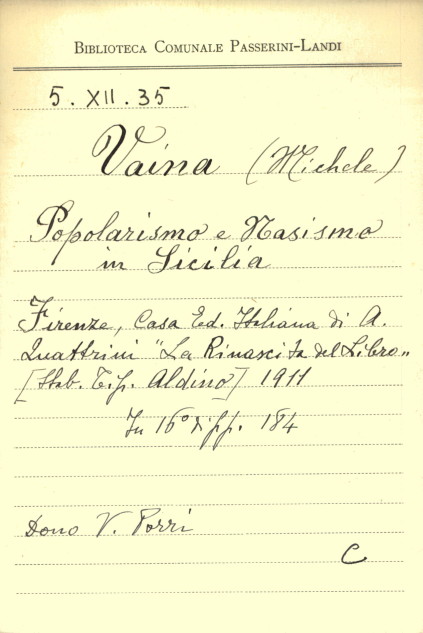 BIBLIOTECA COMUNALE PASSERINI-LANDI
5. XII. 35
Vaina (Michele)
Popolarismo e Nasismo
in Sicilia
Firenze, Casa Ed. Italiana di A.
Quattrini "La Rinascita del Libro"
[Stab. Tip. Aldino] 1911
In 16° di pp. 184
Dono V. Porri
C